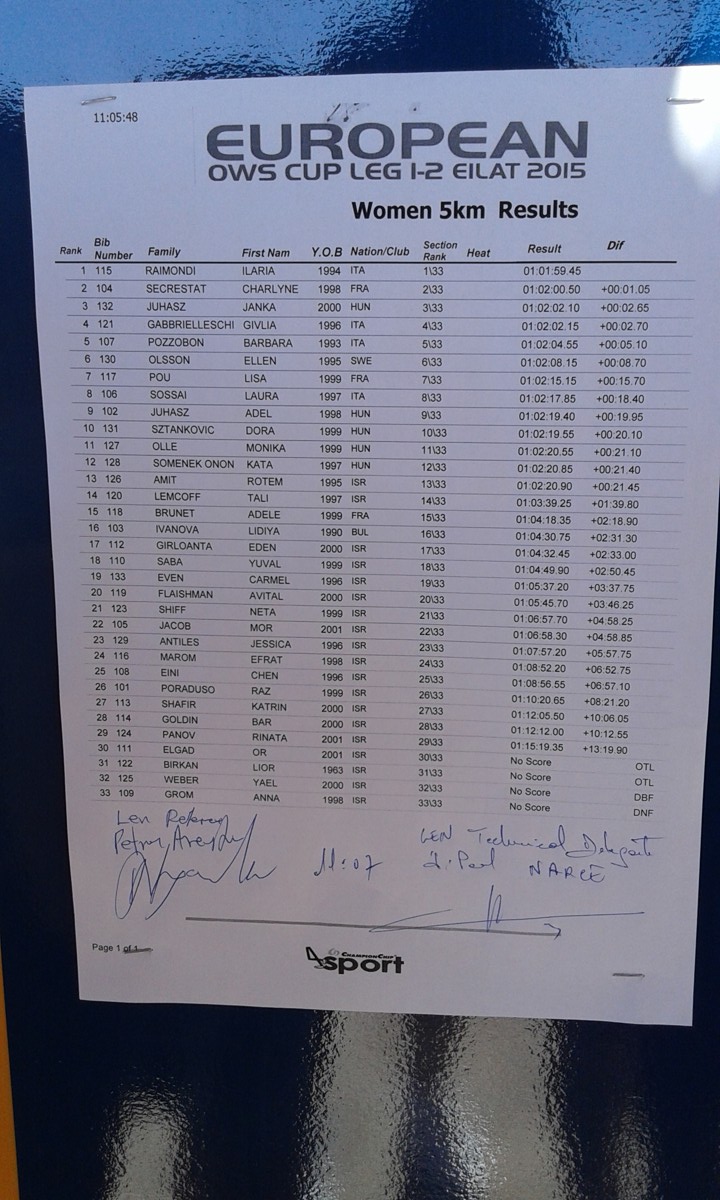 11:05:48
EUROPEAN
OWS CUP LEG 1-2 EILAT 2015
Women 5km Results
Rank Bib Number Family First Nam Y.O.B Nation/Club Section Rank Heat Result Dif
1 115 RAIMONDI ILARIA 1994 ITA 1\33 01:01:59.45
2 104 SECRESTAT CHARLYNE 1998 FRA 2\33 01:02:00.50 +00:01.05
3 132 JUHASZ JANKA 2000 HUN 3\33 01:02:02.10 +00:02.65
4 121 GABBRIELLESCHI GIVLIA 1996 ITA 4\33 01:02:02.15 +00:02.70
5 107 POZZOBON BARBARA 1993 ITA 5\33 01:02:04.55 +00:05.10
6 130 OLSSON ELLEN 1995 SWE 6\33 01:02:08.15 +00:08.70
7 117 POU LISA 1999 FRA 7\33 01:02:15.15 +00:15.70
8 106 SOSSAI LAURA 1997 ITA 8\33 01:02:17.85 +00:18.40
9 102 JUHASZ ADEL 1998 HUN 9\33 01:02:19.40 +00:19.95
10 131 SZTANKOVIC DORA 1999 HUN 10\33 01:02:19.55 +00:20.10
11 127 OLLE MONIKA 1999 HUN 11\33 01:02:20.55 +00:21.10
12 128 SOMENEK ONON KATA 1997 HUN 12\33 01:02:20.85 +00:21.40
13 126 AMIT ROTEM 1995 ISR 13\33 01:02:20.90 +00:21.45
14 120 LEMCOFF TALI 1997 ISR 14\33 01:03:39.25 +01:39.80
15 118 BRUNET ADELE 1999 FRA 15\33 01:04:18.35 +02:18.90
16 103 IVANOVA LIDIYA 1990 BUL 16\33 01:04:30.75 +02:31.30
17 112 GIRLOANTA EDEN 2000 ISR 17\33 01:04:32.45 +02:33.00
18 110 SABA YUVAL 1999 ISR 18\33 01:04:49.90 +02:50.45
19 133 EVEN CARMEL 1996 ISR 19\33 01:05:37.20 +03:37.75
20 119 FLAISHMAN AVITAL 2000 ISR 20\33 01:05:45.70 +03:46.25
21 123 SHIFF NETA 1999 ISR 21\33 01:06:57.70 +04:58.25
22 105 JACOB MOR 2001 ISR 22\33 01:06:58.30 +04:58.85
23 129 ANTILES JESSICA 1996 ISR 23\33 01:07:57.20 +05:57.75
24 116 MAROM EFRAT 1998 ISR 24\33 01:08:52.20 +06:52.75
25 108 EINI CHEN 1996 ISR 25\33 01:08:56.55 +06:57.10
26 101 PORADUSO RAZ 1999 ISR 26\33 01:10:20.65 +08:21.20
27 113 SHAFIR KATRIN 2000 ISR 27\33 01:12:05.50 +10:06.05
28 114 GOLDIN BAR 2000 ISR 28\33 01:12:12.00 +10:12.55
29 124 PANOV RINATA 2001 ISR 29\33 01:15:19.35 +13:19.90
30 111 ELGAD OR 2001 ISR 30\33 No Score OTL
31 122 BIRKAN LIOR 1963 ISR 31\33 No Score OTL
32 125 WEBER YAEL 2000 ISR 32\33 No Score DBF
33 109 GROM ANNA 1998 ISR 33\33 No Score DNF
Len Referee LEN Technical Delegate
11:07 NARCE
Page 1 of 1
CHAMPIONCHIP
4sport